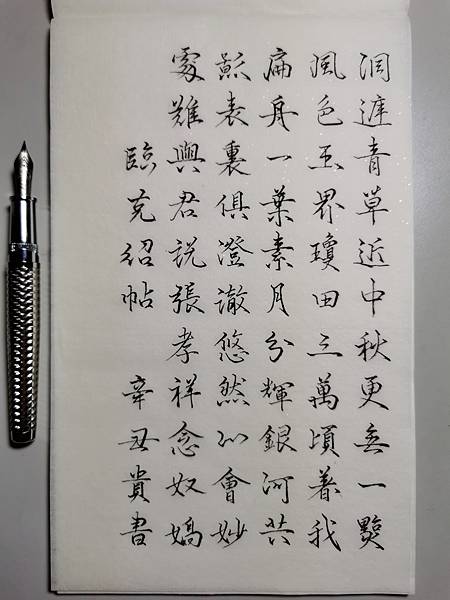 洞庭青草近中秋更無一點
風色玉界瓊田三萬頃着我
扁舟一葉素月分輝銀河共
影表裏俱澄澈悠然心會妙
處難與君說張孝祥念奴嬌
臨克紹帖 辛丑貴書